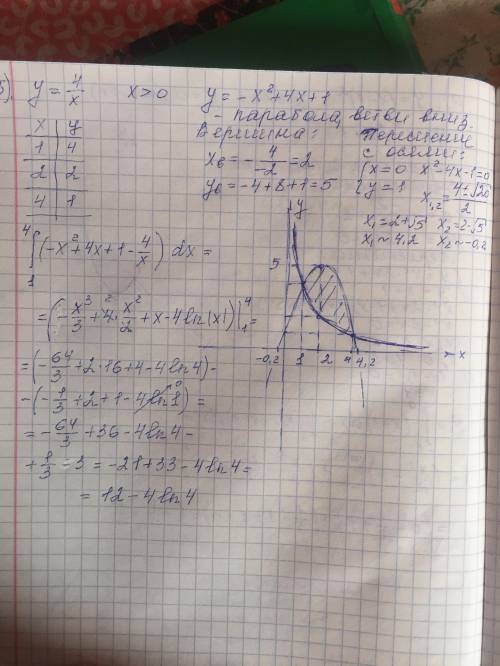 5). y = 4/x   x > 0   y = -x² + 4x + 1
- парабола, ветви вниз.
x | y
1 | 4
2 | 2
4 | 1
Вершина:
x_в = -4/-2 = 2
y_в = -4+8+1 = 5
Пересечение
с осями:
{x = 0   x²-4x-1=0
{y = 1   x₁,₂ = (4±√20)/2
x₁=2+√5   x₂=2-√5
x₁ ~ 4,2   x₂ ~ -0,2
4
∫ (-x² + 4x + 1 - 4/x) dx =
1
= (-x³/3 + 4² · x²/2 + x - 4ln|x|)|₁⁴ =
= (-64/3 + 2·16 + 4 - 4ln4) -
- (-1/3 + 2 + 1 - 4ln1⁰) =
= -64/3 + 36 - 4ln4 -
+ 1/3 - 3 = -21 + 33 - 4ln4 =
= 12 - 4ln4
y
5
-0,2 1 2 4 4,2 x